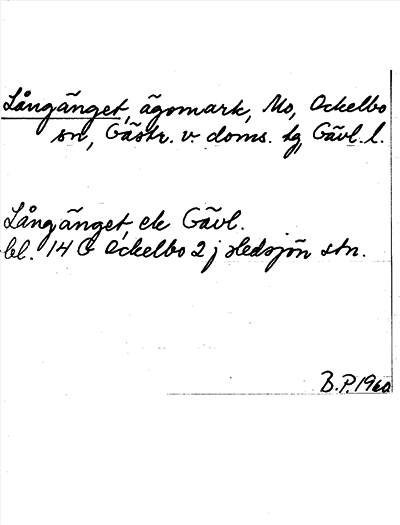 Långänget, ägomark, Mo, Ockelbo
sn, Gästr. v. doms. tg, Gävl. l.
Långänget, ek Gävl.
bl. 14 O Ockelbo 2 j sledsjön stn.
B.P. 1960